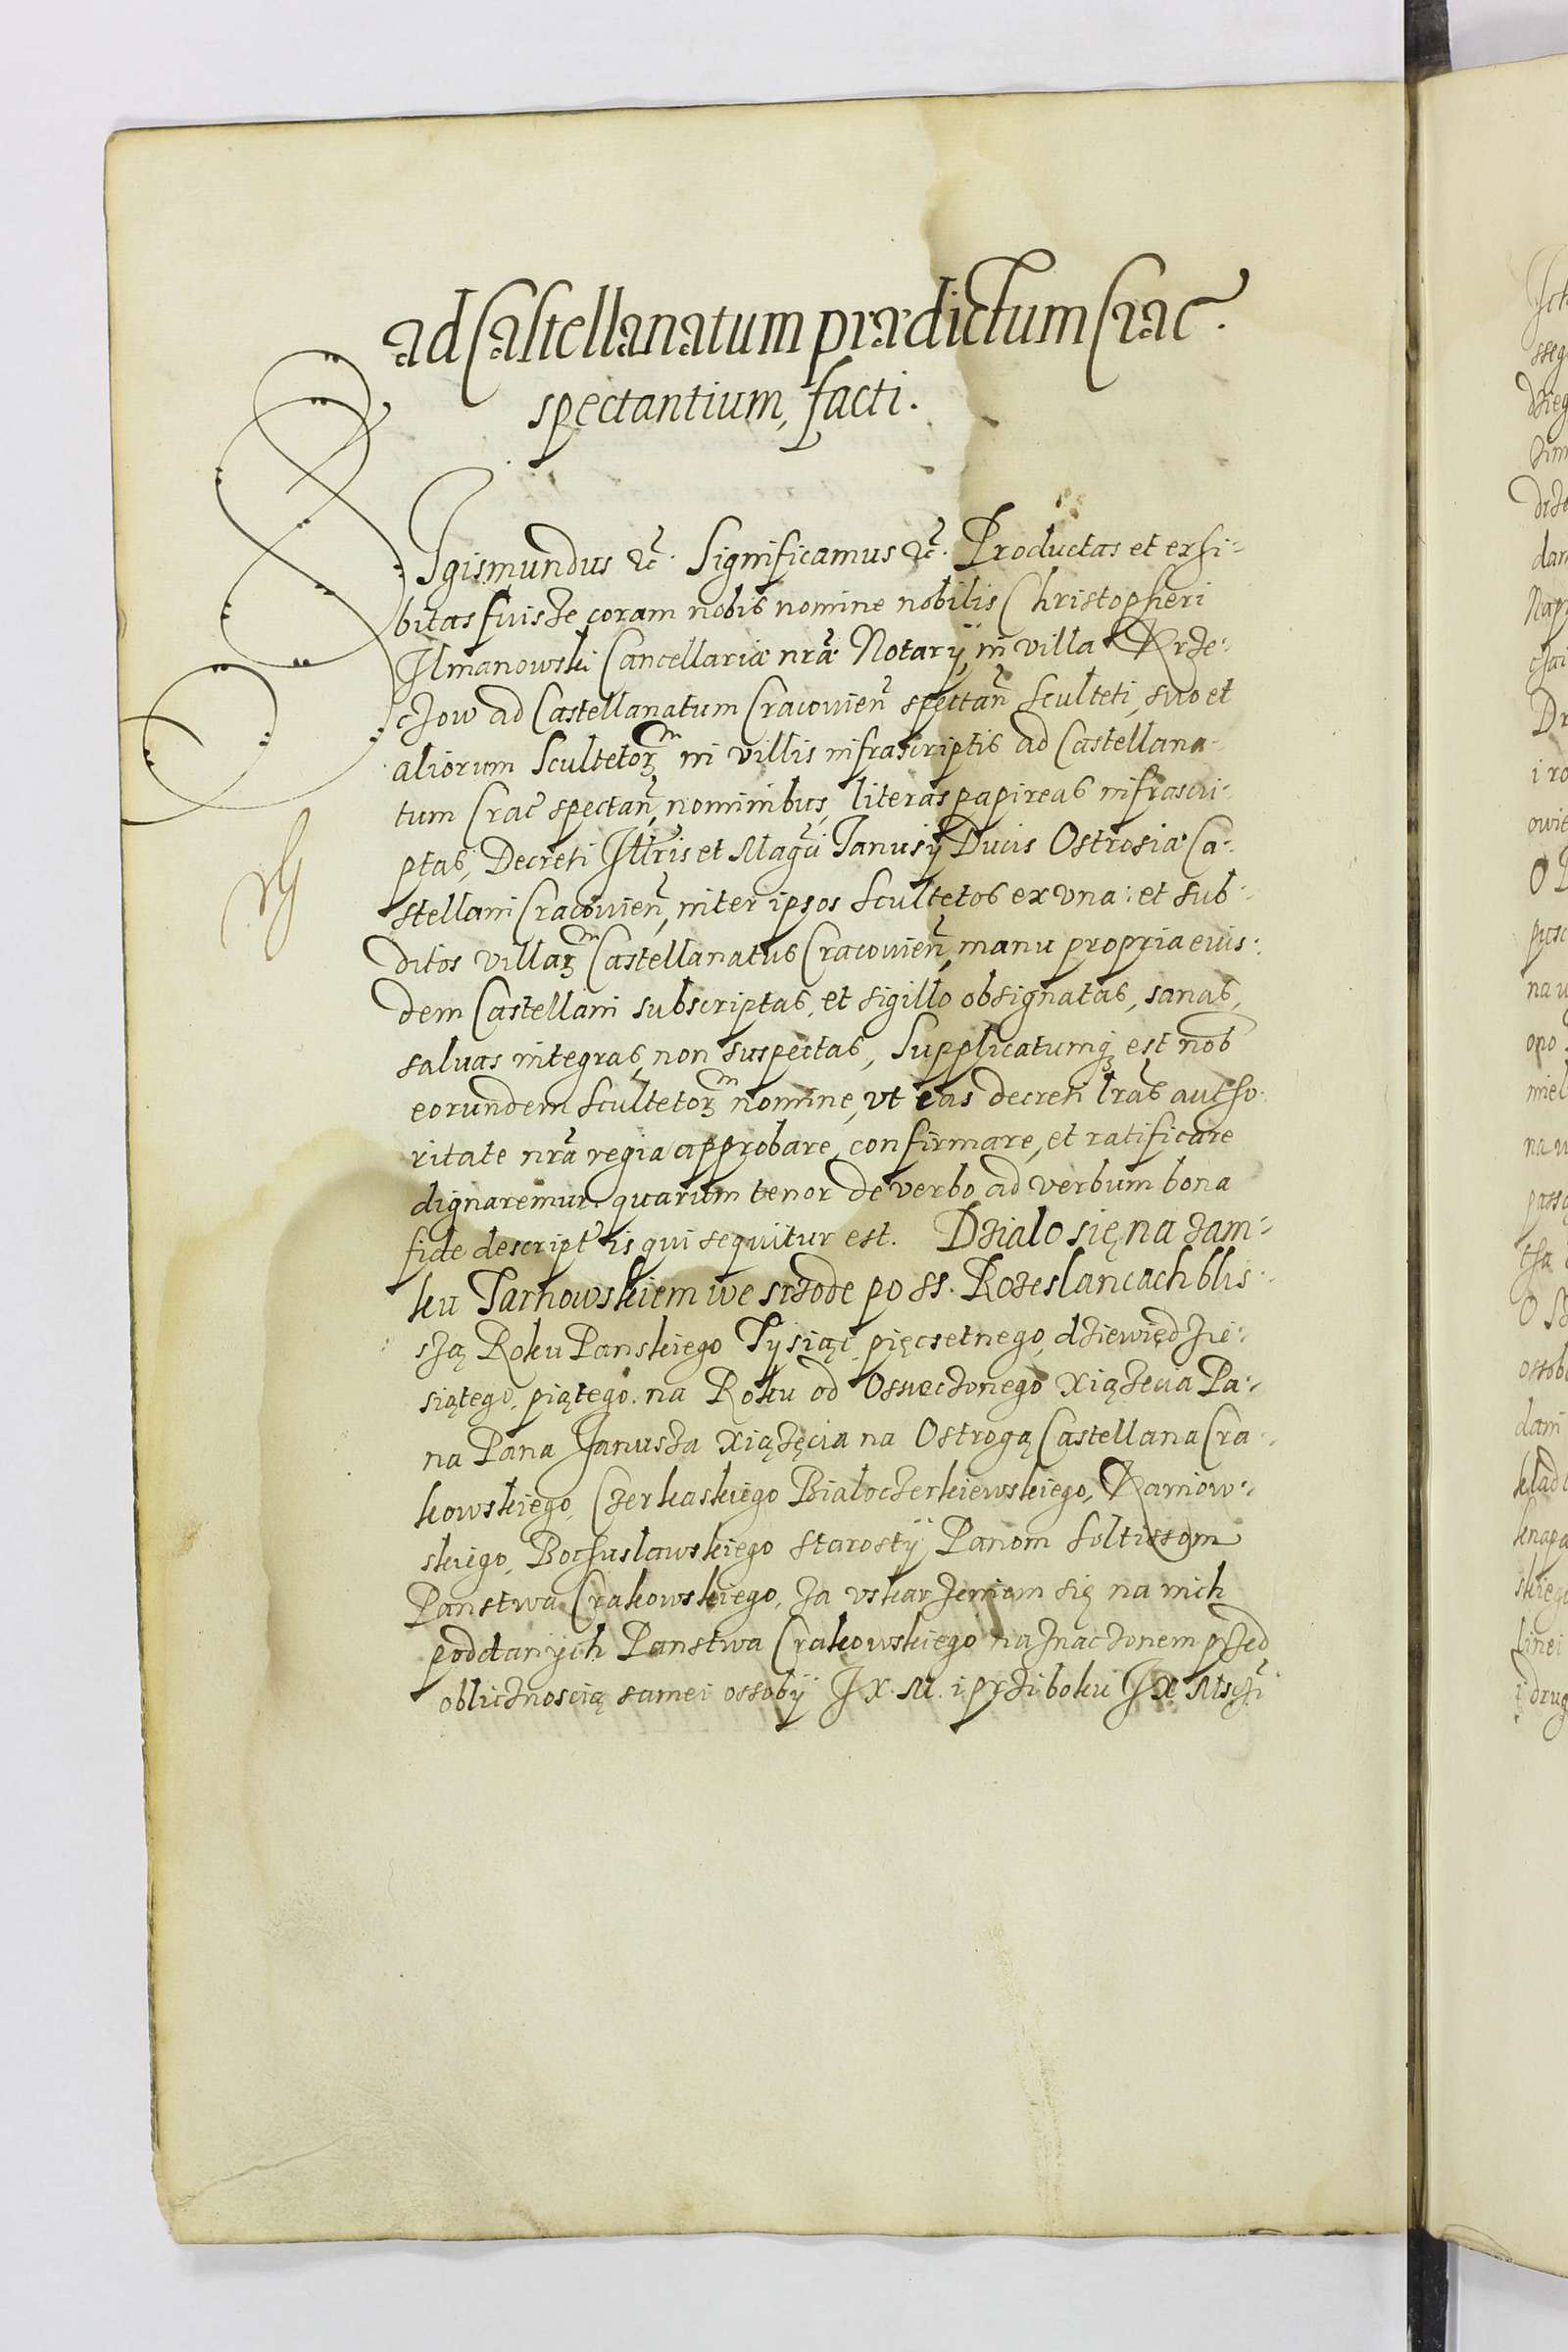 ad Castellanatum prædictum Crac.
spectantium, facti.
Sigismundus etc. Significamus etc. Productas et exhi-
bitas fuisse coram nobis nomine nobilis Christopheri
Ilmanowski Cancellariæ nrã Notarÿ, in villa Krze-
czow ad Castellanatum Cracouien̄ spectan̄ Sculteti, suo et
aliorum Scultetorꝫ in villis infrascriptis ad Castellana-
tum Crac̄ spectan̄, nominibus, literas papireas infrascri-
ptas, Decreti Illris et Magci Janusÿ Ducis Ostrosiæ Ca-
stellani Cracouien̄, inter ipsos Scultetos ex vna: et sub-
ditos villarꝫ Castellanatus Cracouien̄, manu propria eius-
dem Castellani subscriptas, et sigillo obsignatas, sanas,
saluas integras, non suspectas, Supplicatumqꝫ est nob
eorundem Scultetorꝫ nomine, vt eas decreti lras autho-
ritate nrã regia approbare, confirmare, et ratificare
dignaremur. quarum tenor de verbo ad verbum bona
fide descript is qui sequitur est. Dzialo się na zam-
ku Tarnowskiem we srzode po ss. Rozeslancach blis-
szą Roku Panskiego Tysiąc pięcsetnego, dziewiędzie-
siątego, piątego. na Roku od Oswieczonego Xiązecia Pa-
na Pana Janusza Xiązęcia na Ostrogą Castellana Cra-
kowskiego, Czerkaskiego Bialoczerkiewskiego, Kaniow-
skiego, Bochuslawskiego starostÿ Panom Soltissom
Panstwa Crakowskiego, za vskarzeniem się na nich
poddanÿch Panstwa Crakowskiego naznaczonem przed
oblicznoscią samei ossobÿ J X. M. i przi boku J X Msczi